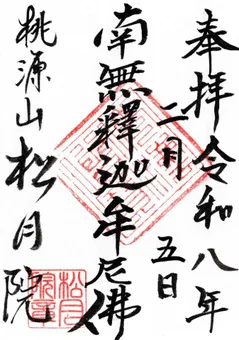 奉拝令和八年
二月五日
南無釋迦牟尼佛
桃源山松月院
松月院章